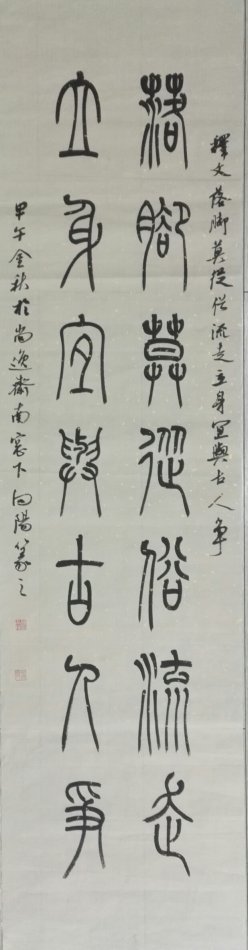 釋文落脚莫從俗流走立身宜與古人爭
落腳莫從俗流走
立身宜與古人爭
甲午金秋於尚逸齋南窓下向陽篆之